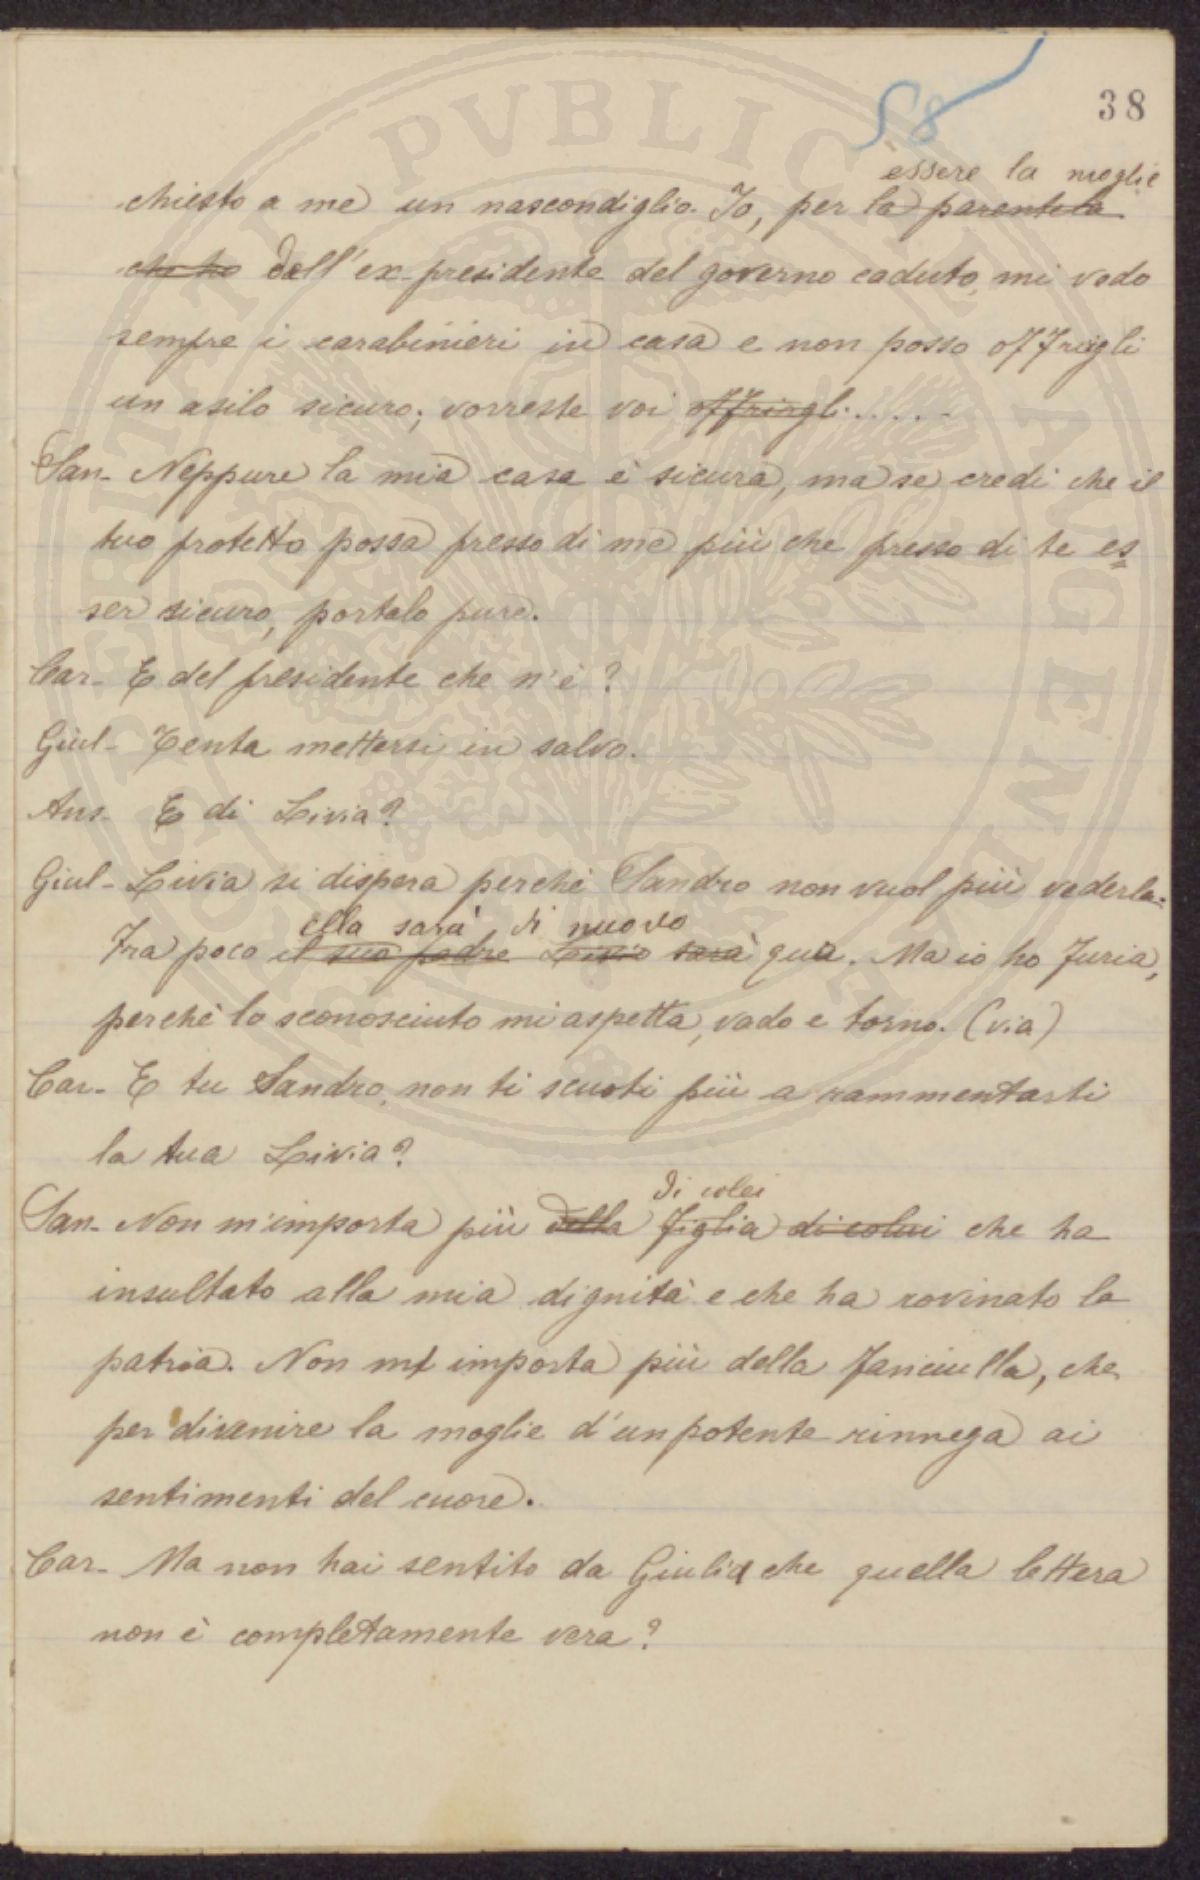 58
38
essere la moglie
chiesto a me un nascondiglio. Io, per la parentela
che ho dell'ex-presidente del governo caduto, mi vedo
sempre i carabinieri in casa e non posso offrirgli
un asilo sicuro; vorreste voi offrirgli.....
San- Neppure la mia casa è sicura, ma se credi che il
tuo protetto possa presso di me più che presso di te es=
ser sicuro, portalo pure.
Car- E del presidente che n'è?
Giul- Tenta mettersi in salvo.
Ans- E di Livia?
Giul- Livia si dispera perchè Sandro non vuol più vederla.
ella sarà di nuovo
Fra poco il suo padre Livio sarà qua. Ma io ho furia,
perchè lo sconosciuto mi aspetta, vado e torno. (via)
Car- E tu Sandro, non ti scuoti più a rammentarti
la tua Livia?
di colei
San- Non m'importa più della figlia di colui che ha
insultato alla mia dignità e che ha rovinato la
patria. Non m'importa più della fanciulla, che
per divenire la moglie d'un potente rinnega ai
sentimenti del cuore.
Car- Ma non hai sentito da Giulia che quella lettera
non è completamente vera?